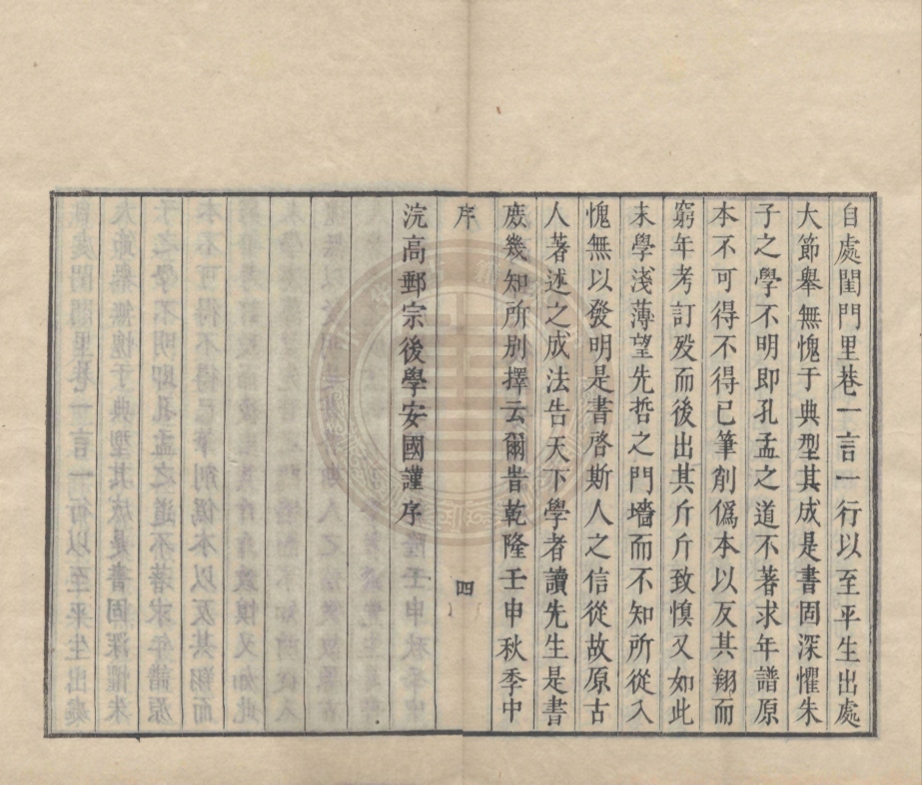 自處閨門里巷一言一行以至平生出處
大節舉無愧于典型其成是書固深懼朱
子之學不明即孔孟之道不著求年譜原
本不可得不得已筆削僞本以反其朔而
窮年考訂歿而後出其斤斤致慎又如此
末學淺薄望先哲之門墻而不知所從入
愧無以發明是書啓斯人之信從故原古
人著述之成法告天下學者讀先生是書
庶幾知所別擇云爾旹乾隆壬申秋季中
序 四
浣高郵宗後學安國謹序